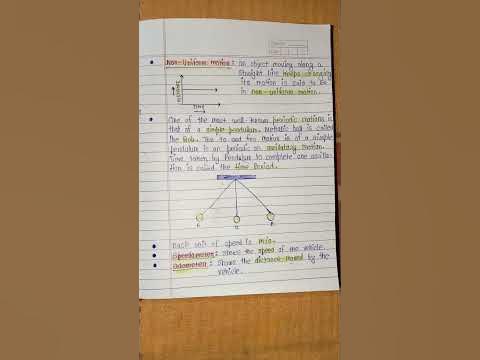 Non-Uniform motion : An object moving along a
straight line keeps changing
its motion is said to be
in non-uniform motion.
Time
One of the most well known periodic motions is
that of a simple pendulum. Metallic ball is called
the Bob. The to and fro motion is of a simple
pendulum is an periodic or oscillatory motion.
Time taken by Pendulum to complete one oscilla-
tion is called the time Period.
Basic unit of speed is m/s.
Speedometer : Shows the speed of the vehicle.
Odometer : Shows the distance moved by the
vehicle.